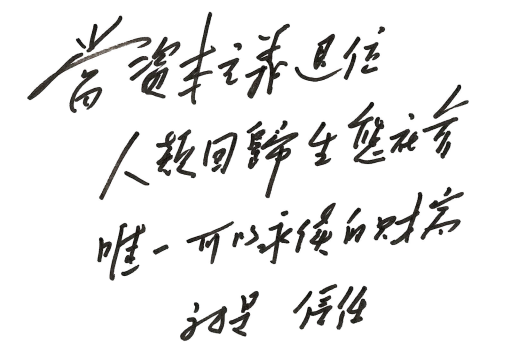 當資本主義退位
人類回歸生態社會
唯一可以永續的財富
就是 信任